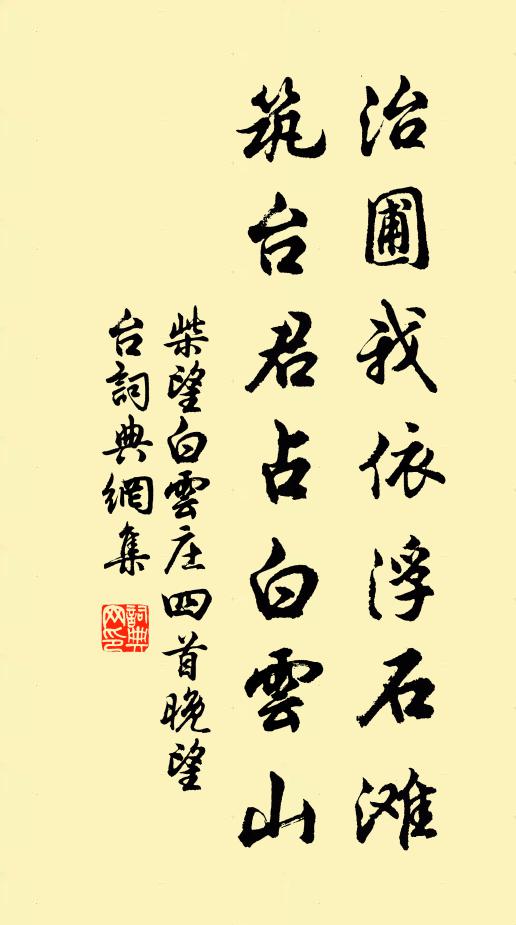 治圃我依浮石滩
筑台君占白雲山
柴望白雲庄四首晚望
台詞典網集
詞典
网印